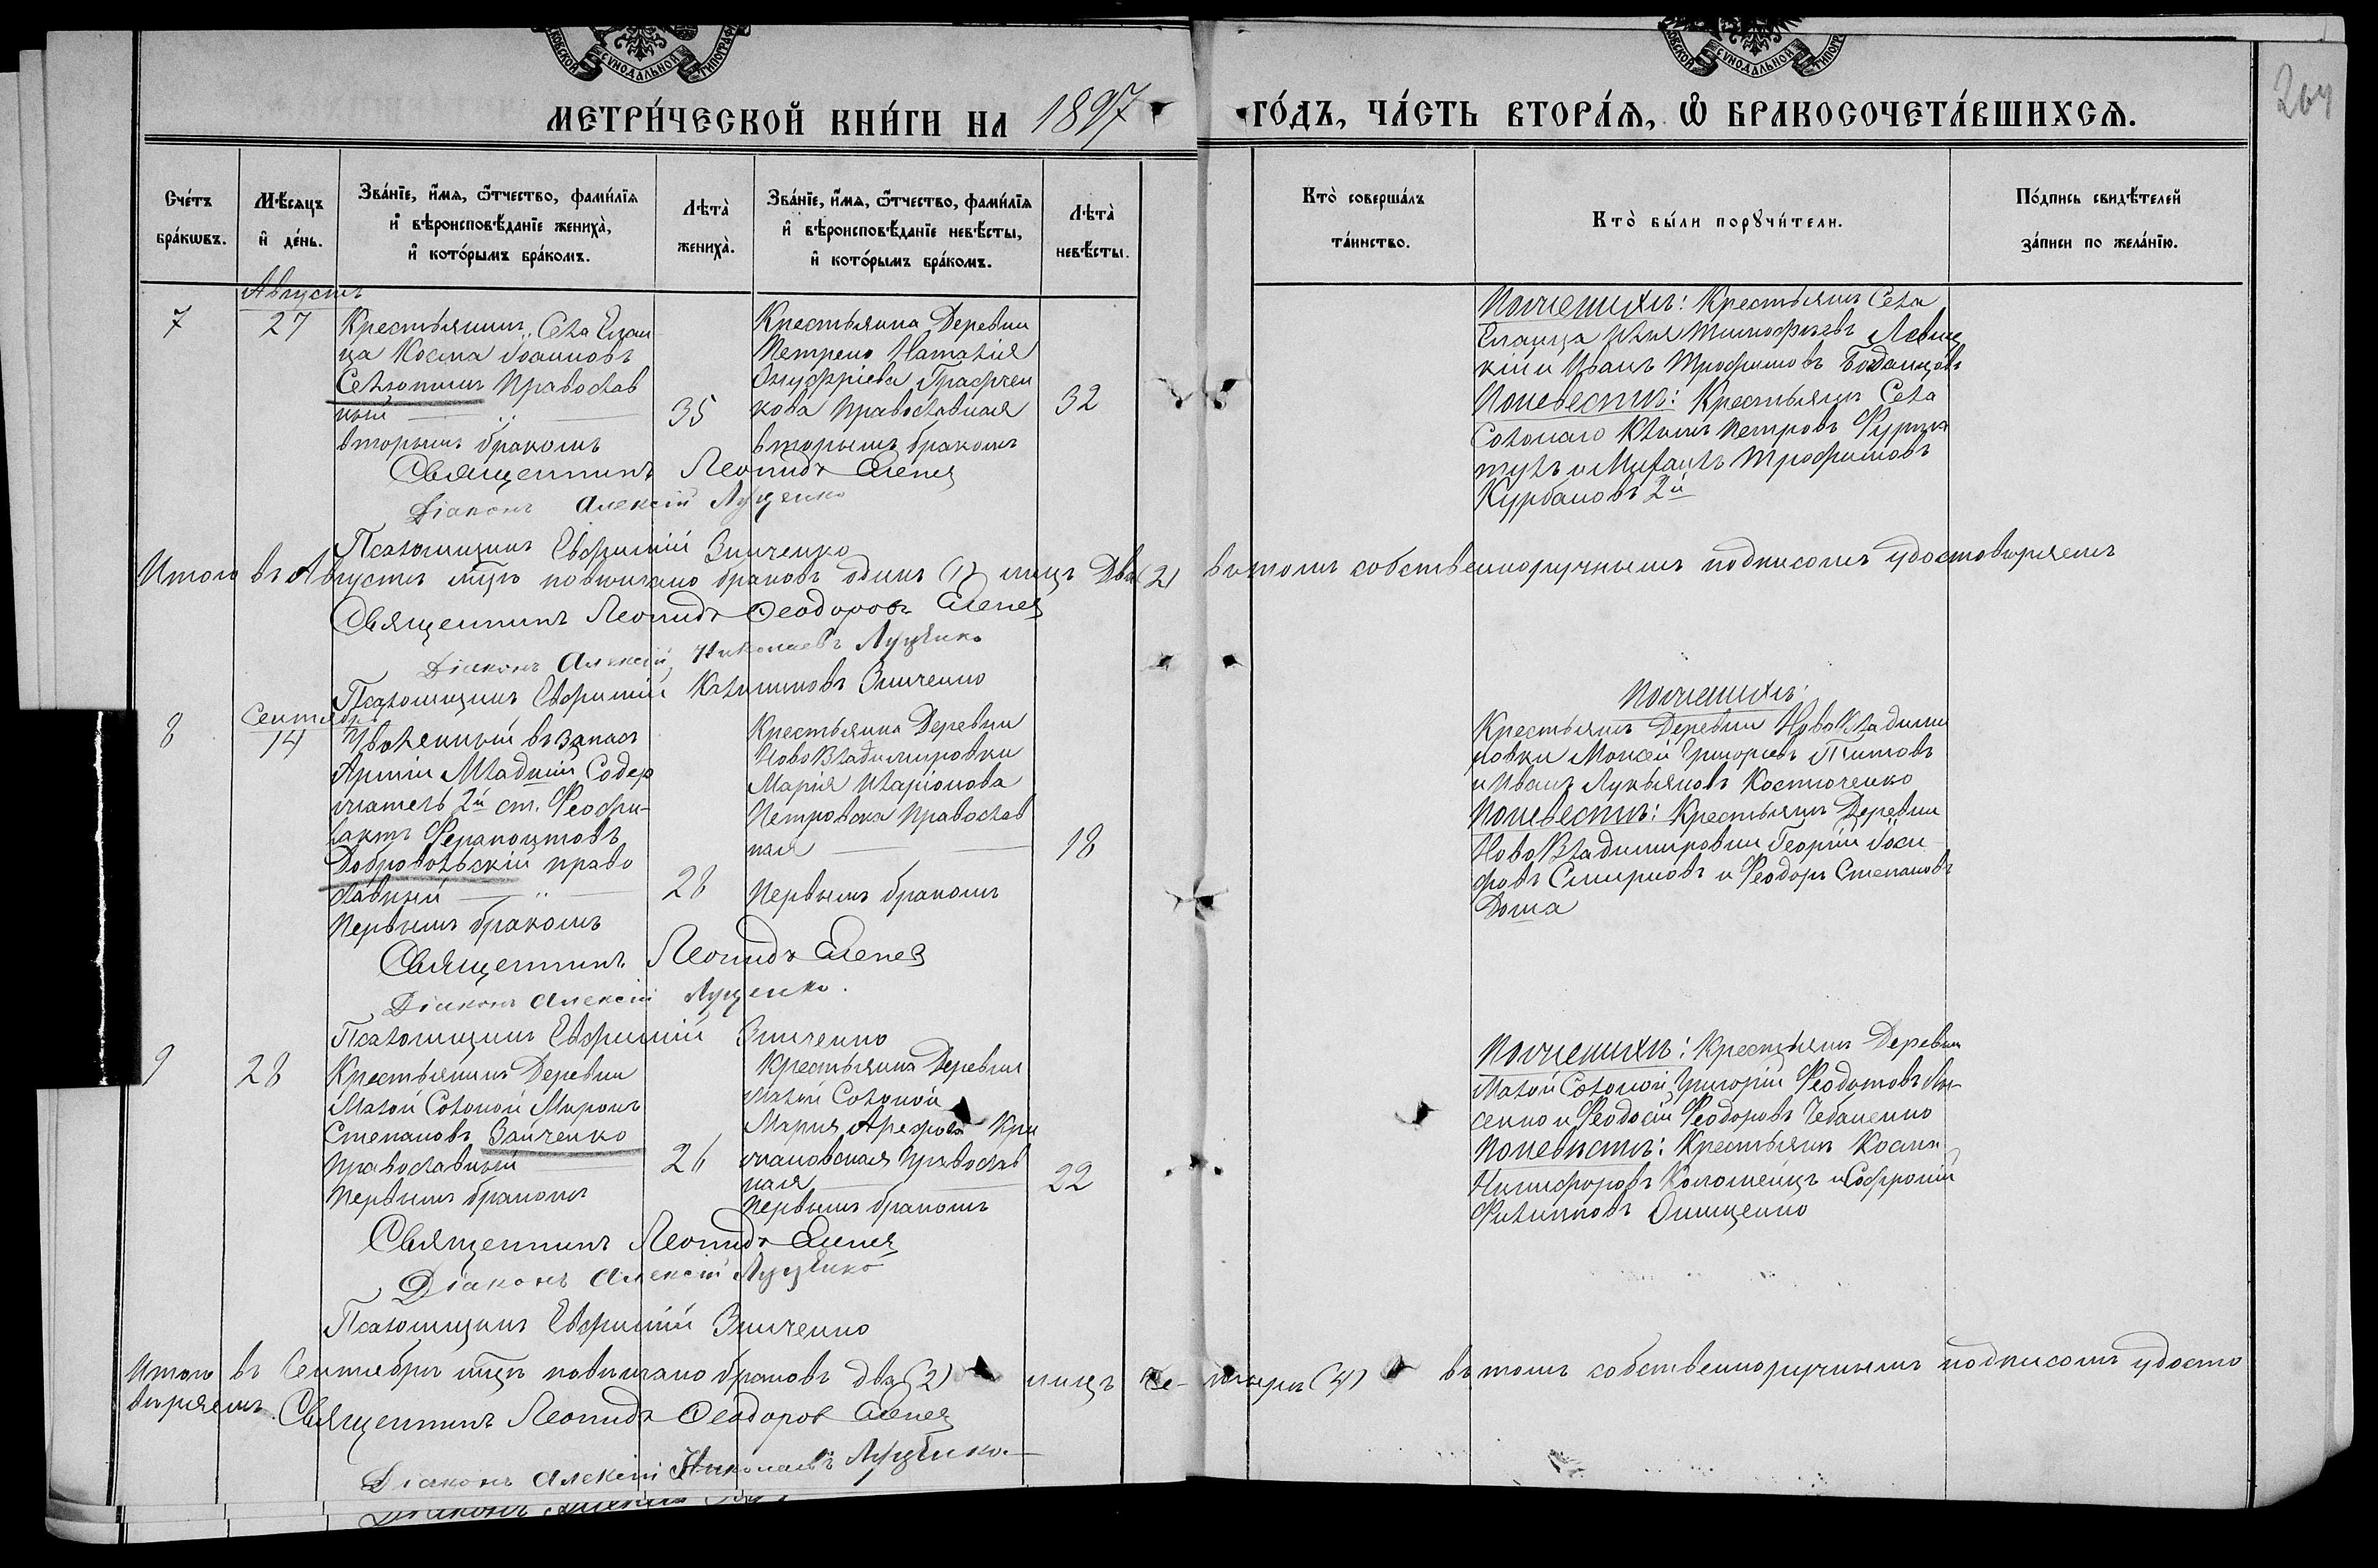 МЕТРИ́ЧЕСКОЙ КНИ́ГИ НА 1897 ГО́ДЪ, ЧА́СТЬ ВТОРА́Я, Ѡ БРАКОСОЧЕТА́ВШИХСЯ.
204
Сче́тъ бра́кωвъ.
Мѣ́сяцъ и де́нь.
Зва́нїе, и́мя, ѻ́тчество, фами́лїя и вѣроисповѣ́данїе жениха̀, и кото́рымъ бра́комъ.
Лѣта̀ жениха̀.
Зва́нїе, и́мя, ѻ́тчество, фами́лїя и вѣроисповѣ́данїе невѣ́сты, и кото́рымъ бра́комъ.
Лѣта̀ невѣ́сты.
Кто̀ соверша́лъ та́инство.
Кто̀ бы́ли порꙋчи́тели.
По́дпись свидѣ́телей за́писи по жела́нїю.
7
Августъ
27
Крестьянинъ Села Елан
ца Косма Іоанновъ
Православ
ный
вторымъ бракомъ
35
Крестьянка Деревни
Петрено Наталія
Онуфріева Графчен
кова Православная
вторымъ бракомъ
32
Поженихѣ: Крестьяне Села
Еланца Илья Тимофѣевъ Левиц
кій и Иванъ Трофимовъ Богданцовъ
Поневестѣ: Крестьяне Села
Солонаго Климъ Петровъ
и Михаилъ Трофимовъ
Курбановъ 2й
Священникъ Леонидъ
Діаконъ Алексій Луценко
Псаломщикъ Евфимій Зинченко
Итого въ Августѣ мцѣ повѣнчано браковъ одинъ (1) лицъ Два (2) въ томъ собственноручнымъ подписомъ удостовѣряемъ
Священникъ Леонидъ Ѳеодоровъ
Діаконъ Алексій Николаевъ Луценко
Псаломщикъ Евфимій Каллиниковъ Зинченко
8
Сентябрь
14
Уволенный въ запасъ
Арміи Младшій Содер
жатель 2й ст. Феофи-
лактъ Ферапонтовъ
Добровольскій право
славный
Первымъ бракомъ
28
Крестьянка Деревни
Ново Владимировки
Марія Иларіонова
Петровска Православ
ная
Первымъ бракомъ
18
Поженихѣ:
Крестьяне Деревни Ново Владими
ровки Моисей Григорьевъ Титовъ
и Иванъ Лукьяновъ Костюченко
Поневестѣ: Крестьяне Деревни
Ново Владимировки Георгій Іоси
фовъ Смирновъ и Феодоръ Степановъ
Дома
Священникъ Леонидъ
Діаконъ Алексій Луценко.
Псаломщикъ Евфимій Зинченко
9
28
Крестьянинъ Деревни
Малой Солоной Миронъ
Степановъ Зайченко
Православный
Первымъ бракомъ
26
Крестьянка Деревни
Малой Солоной
Марія Арефова Кри
жановская Православ
ная
Первымъ бракомъ
22
Поженихѣ: Крестьяне Деревни
Малой Солоной Григорій Феодотовъ Лы-
сенко и Феодосій Феодоровъ Чебаненко
Поневѣстѣ: Крестьяне Косма
Никифоровъ Коломеецъ и Софроній
Филипповъ Онищенко
Священникъ Леонидъ
Діаконъ Алексій Луценко
Псаломщикъ Евфимій Зинченко
Итого въ Сентябрѣ мцѣ повѣнчано браковъ два (2) лицъ Че- тыре (4) въ томъ собственноручнымъ подписомъ удосто
вѣряемъ. Священникъ Леонидъ Ѳеодоровъ
Діаконъ Алексій Николаевъ Луценко.